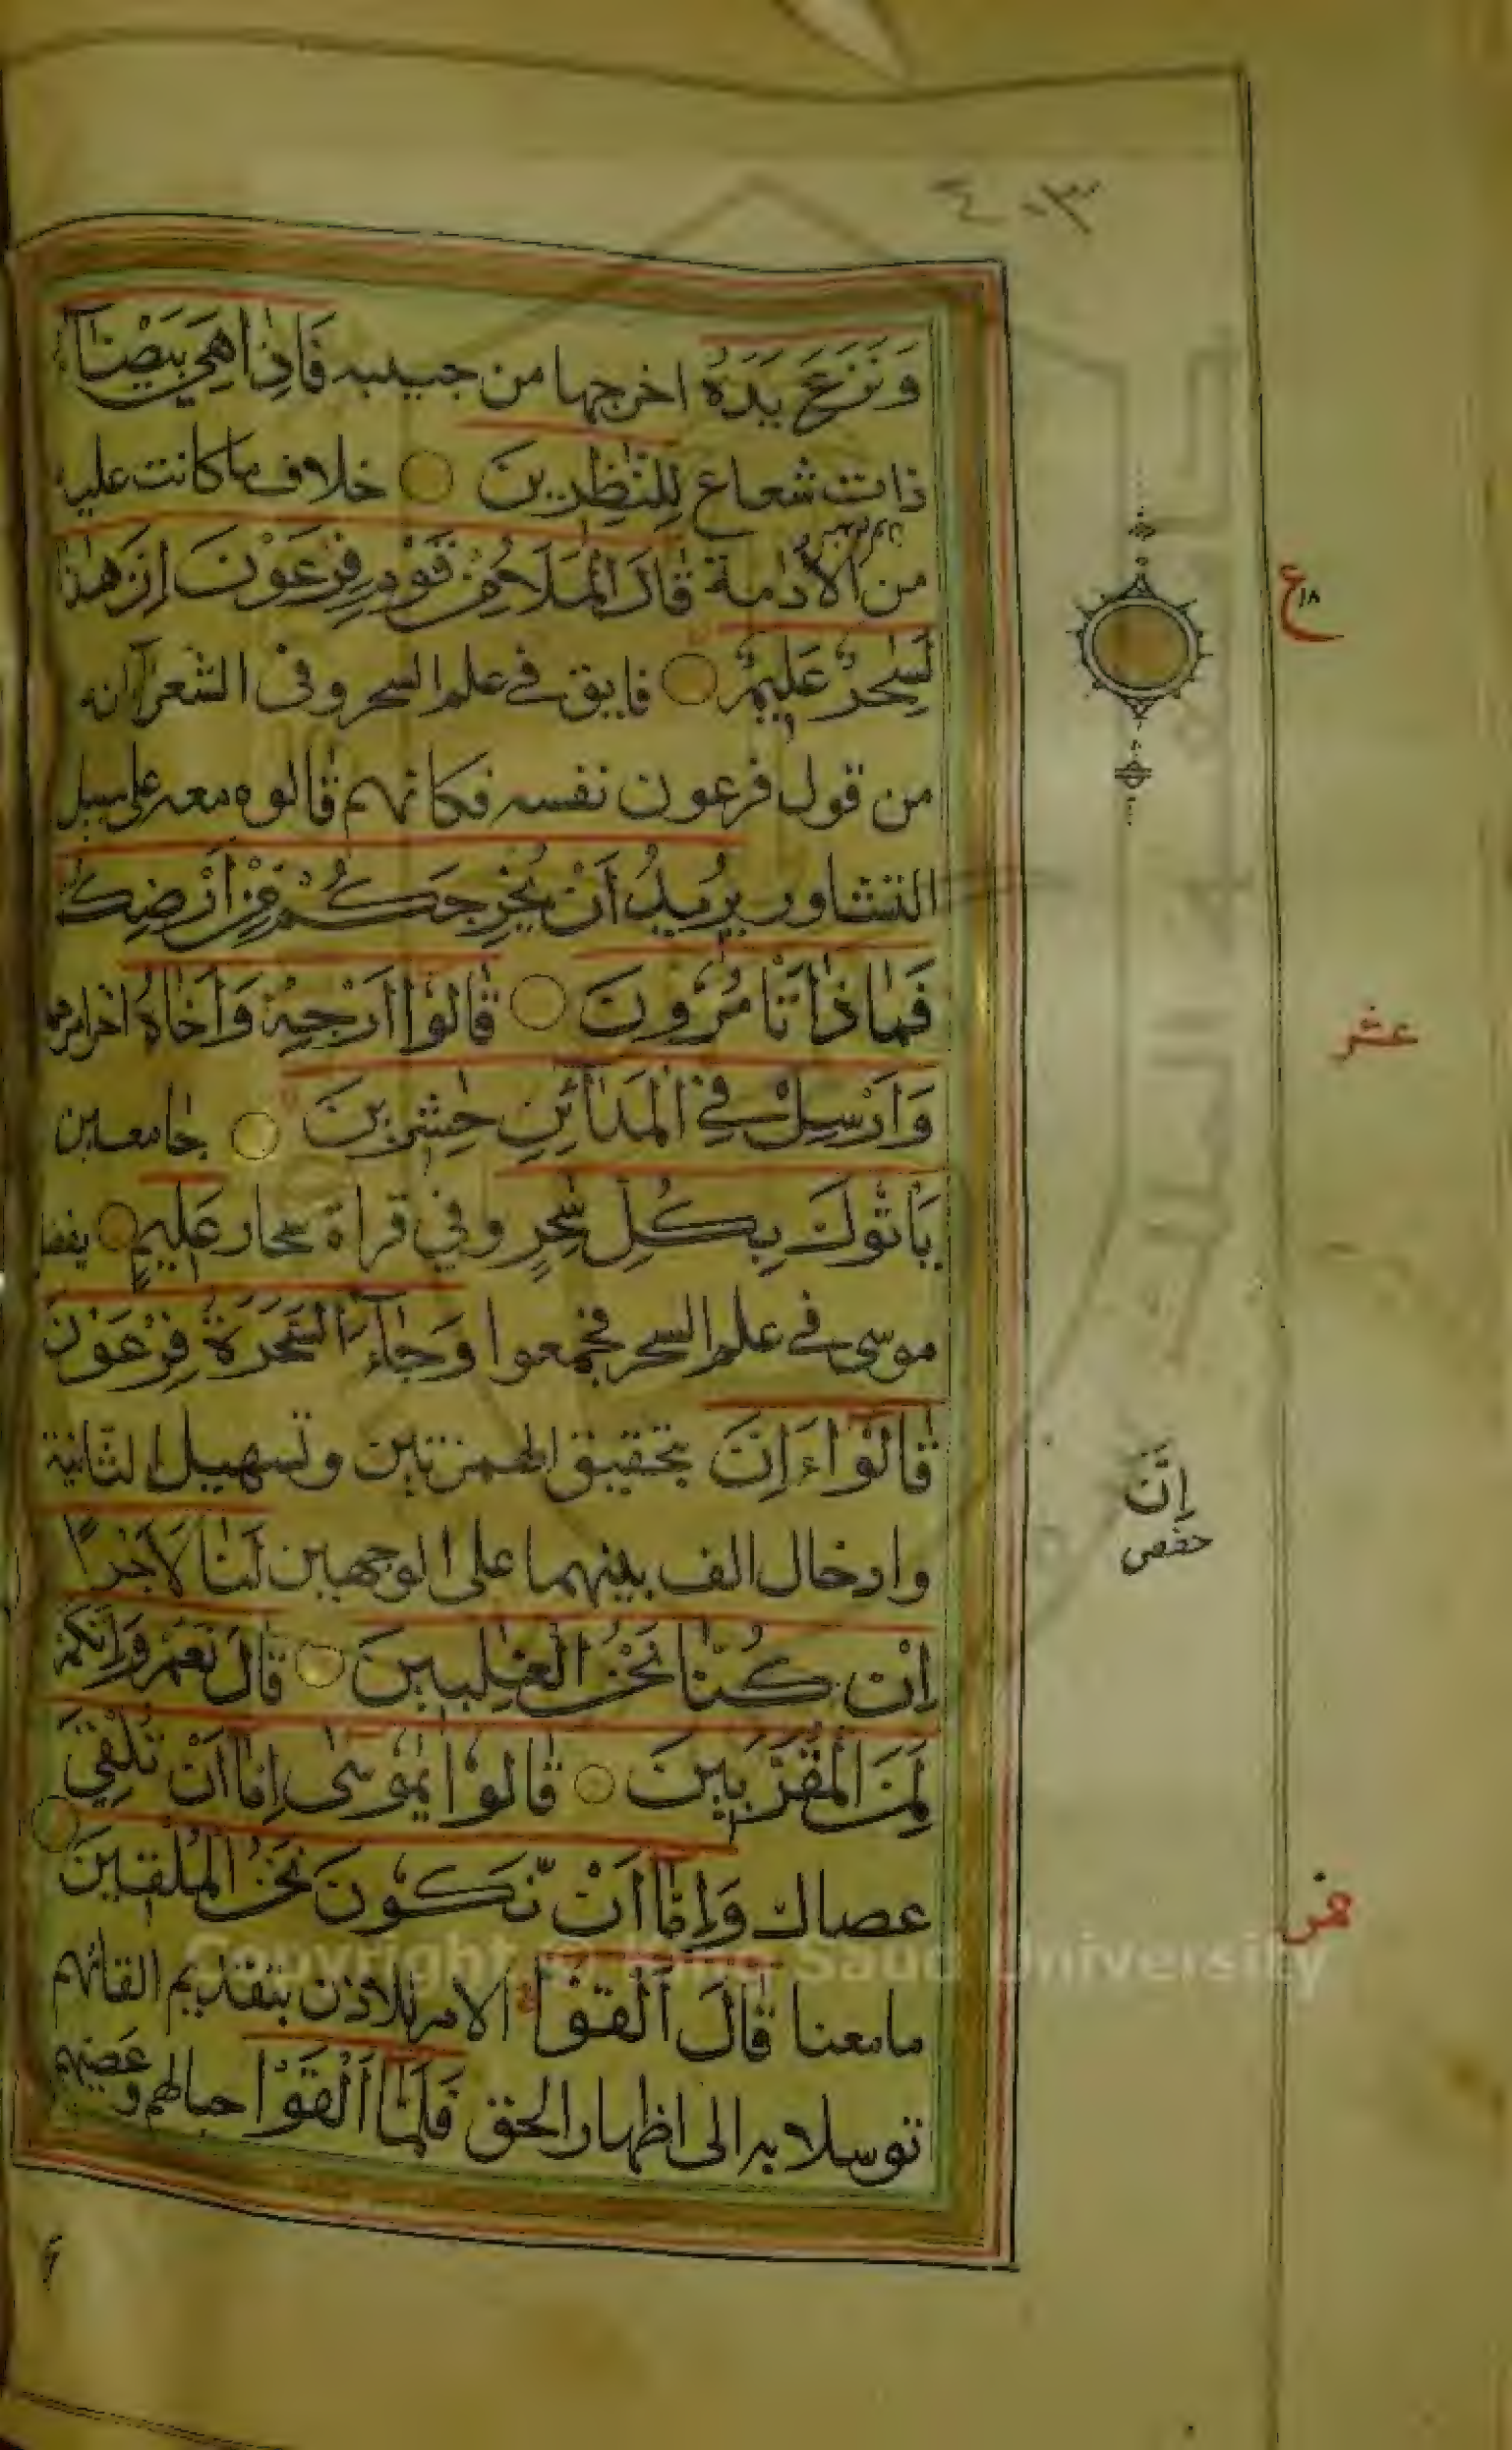 ٤٠٣
وَنَزَعَ يَدَهُ اخرجها من جيبه فَاِذَا هِيَ بَيْضَآءُ
ذات شعاع لِلنّٰظِرِينَ خلاف ما كانت عليه
من الادمة قَالَ الْمَلَأُ مِنْ قَوْمِ فِرْعَوْنَ اِنَّ هٰذَا
لَسٰحِرٌ عَلِيمٌ فايق في علم السحر وفى الشعرآ انه
من قول فرعون نفسه فكانهم قالوه معه على سبيل
التشاور يُرِيدُ اَنْ يُخْرِجَكُمْ مِنْ اَرْضِكُمْ
فَمَاذَا تَأْمُرُونَ قَالُوا اَرْجِهْ وَاَخَاهُ اخر امرهما
وَاَرْسِلْ فِي الْمَدَآئِنِ حٰشِرِينَ جامعين
يَأْتُوكَ بِكُلِّ سٰحِرٍ وفي قراة سحار عَلِيمٍ يفضل
موسى في علم السحر فجمعوا وَجَآءَ السَّحَرَةُ فِرْعَوْنَ
قَالُوا ءَاِنَّ بتحقيق الهمزتين وتسهيل الثانية
وادخال الف بينهما على الوجهين لَنَا لَاَجْرًا
اِنْ كُنَّا نَحْنُ الْغٰلِبِينَ قَالَ نَعَمْ وَاِنَّكُمْ
لَمِنَ الْمُقَرَّبِينَ قَالُوا يٰمُوسٰى اِمَّا اَنْ تُلْقِيَ
عصاك وَاِمَّا اَنْ نَّكُونَ نَحْنُ الْمُلْقِينَ
مامعنا قَالَ اَلْقُوْا الامر للاذن بتقديم القائهم
توسلا به الى اظهار الحق فَلَمَّا اَلْقَوْا حبالهم وعصيهم
ع ١٨
عشر
اِنَّ
حفص
Copyright © King Saud University